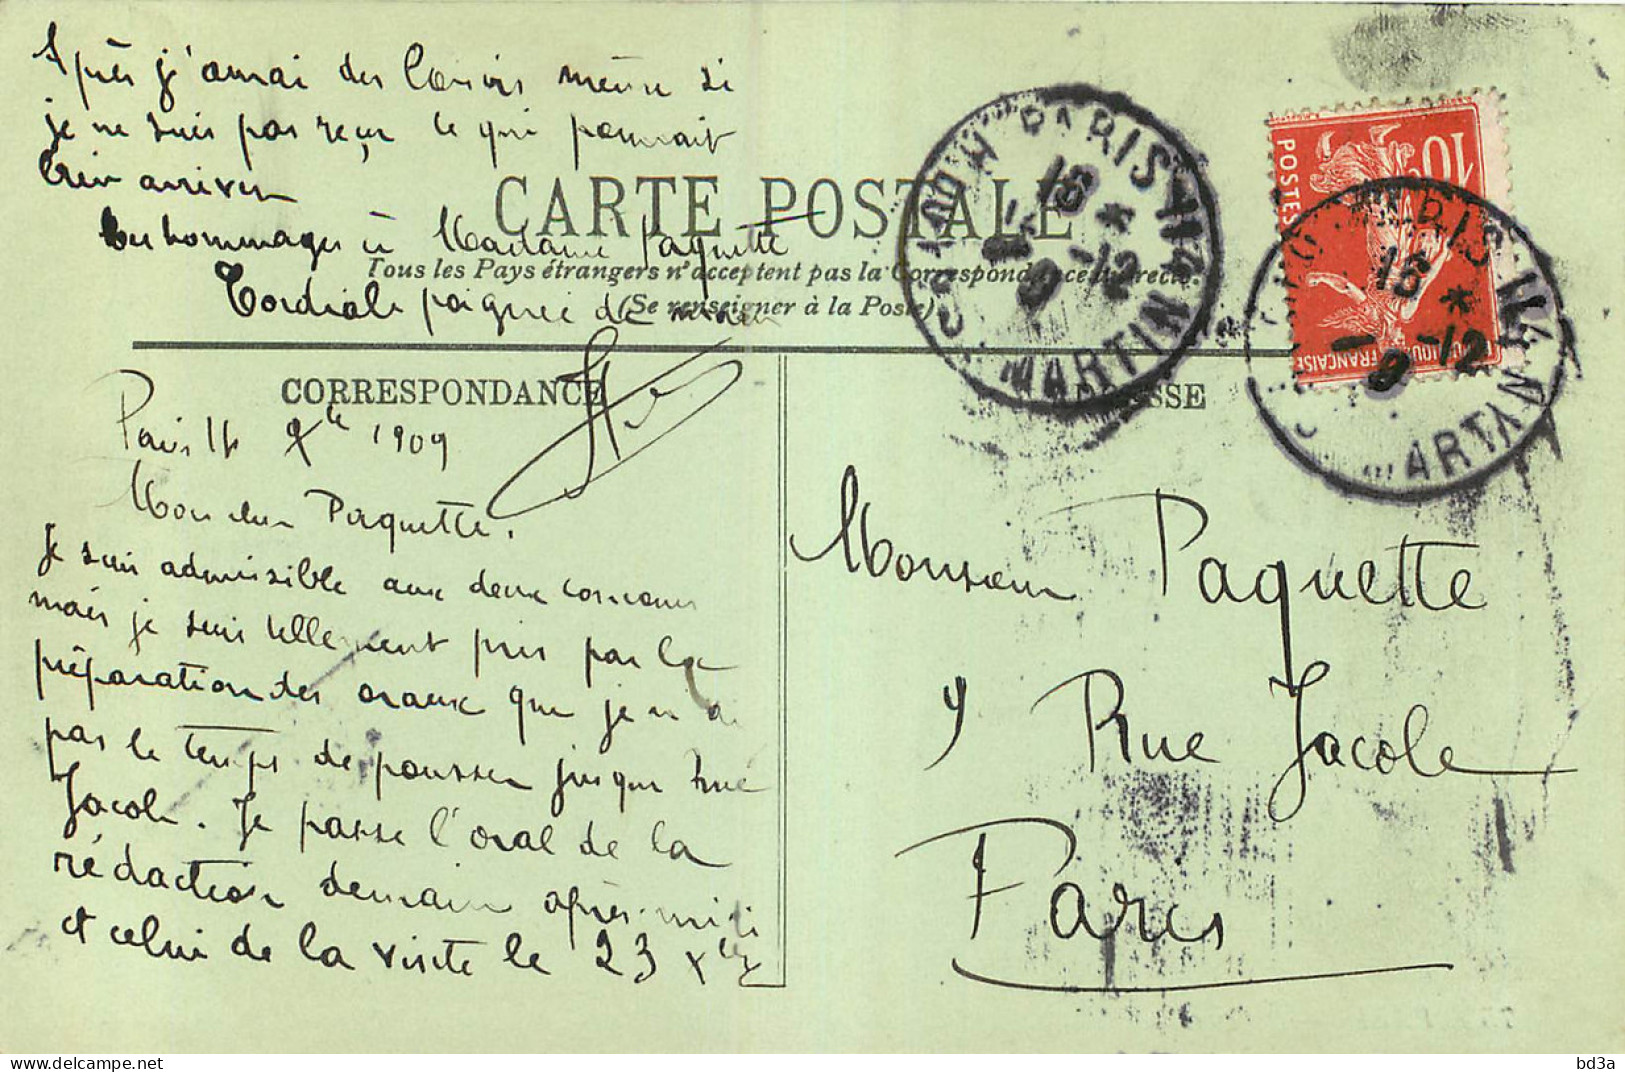 Après j'aurai des loisirs même si
je ne suis pas reçu ce qui pourrait
bien arriver
Mes hommages à Madame Paquette
Cordiale poignée de main
CARTE POSTALE
Tous les Pays étrangers n'acceptent pas la Correspondance au recto.
(Se renseigner à la Poste)
CORRESPONDANCE
Paris 1909
Mon cher Paquette.
Je suis admissible aux deux concours
mais je suis tellement pris par la
préparation des oraux que je n'ai
pas le temps de pousser jusque rue
Jacob. Je passe l'oral de la
rédaction demain après-midi
et celui de la visite le 23 Xbre
PARIS
15 *
9 -12
MARTIN
10
POSTES
FRANÇAISE
PARIS
15 *
9 -12
MARTIN
Monsieur Paquette
9 Rue Jacob
Paris
bd3a